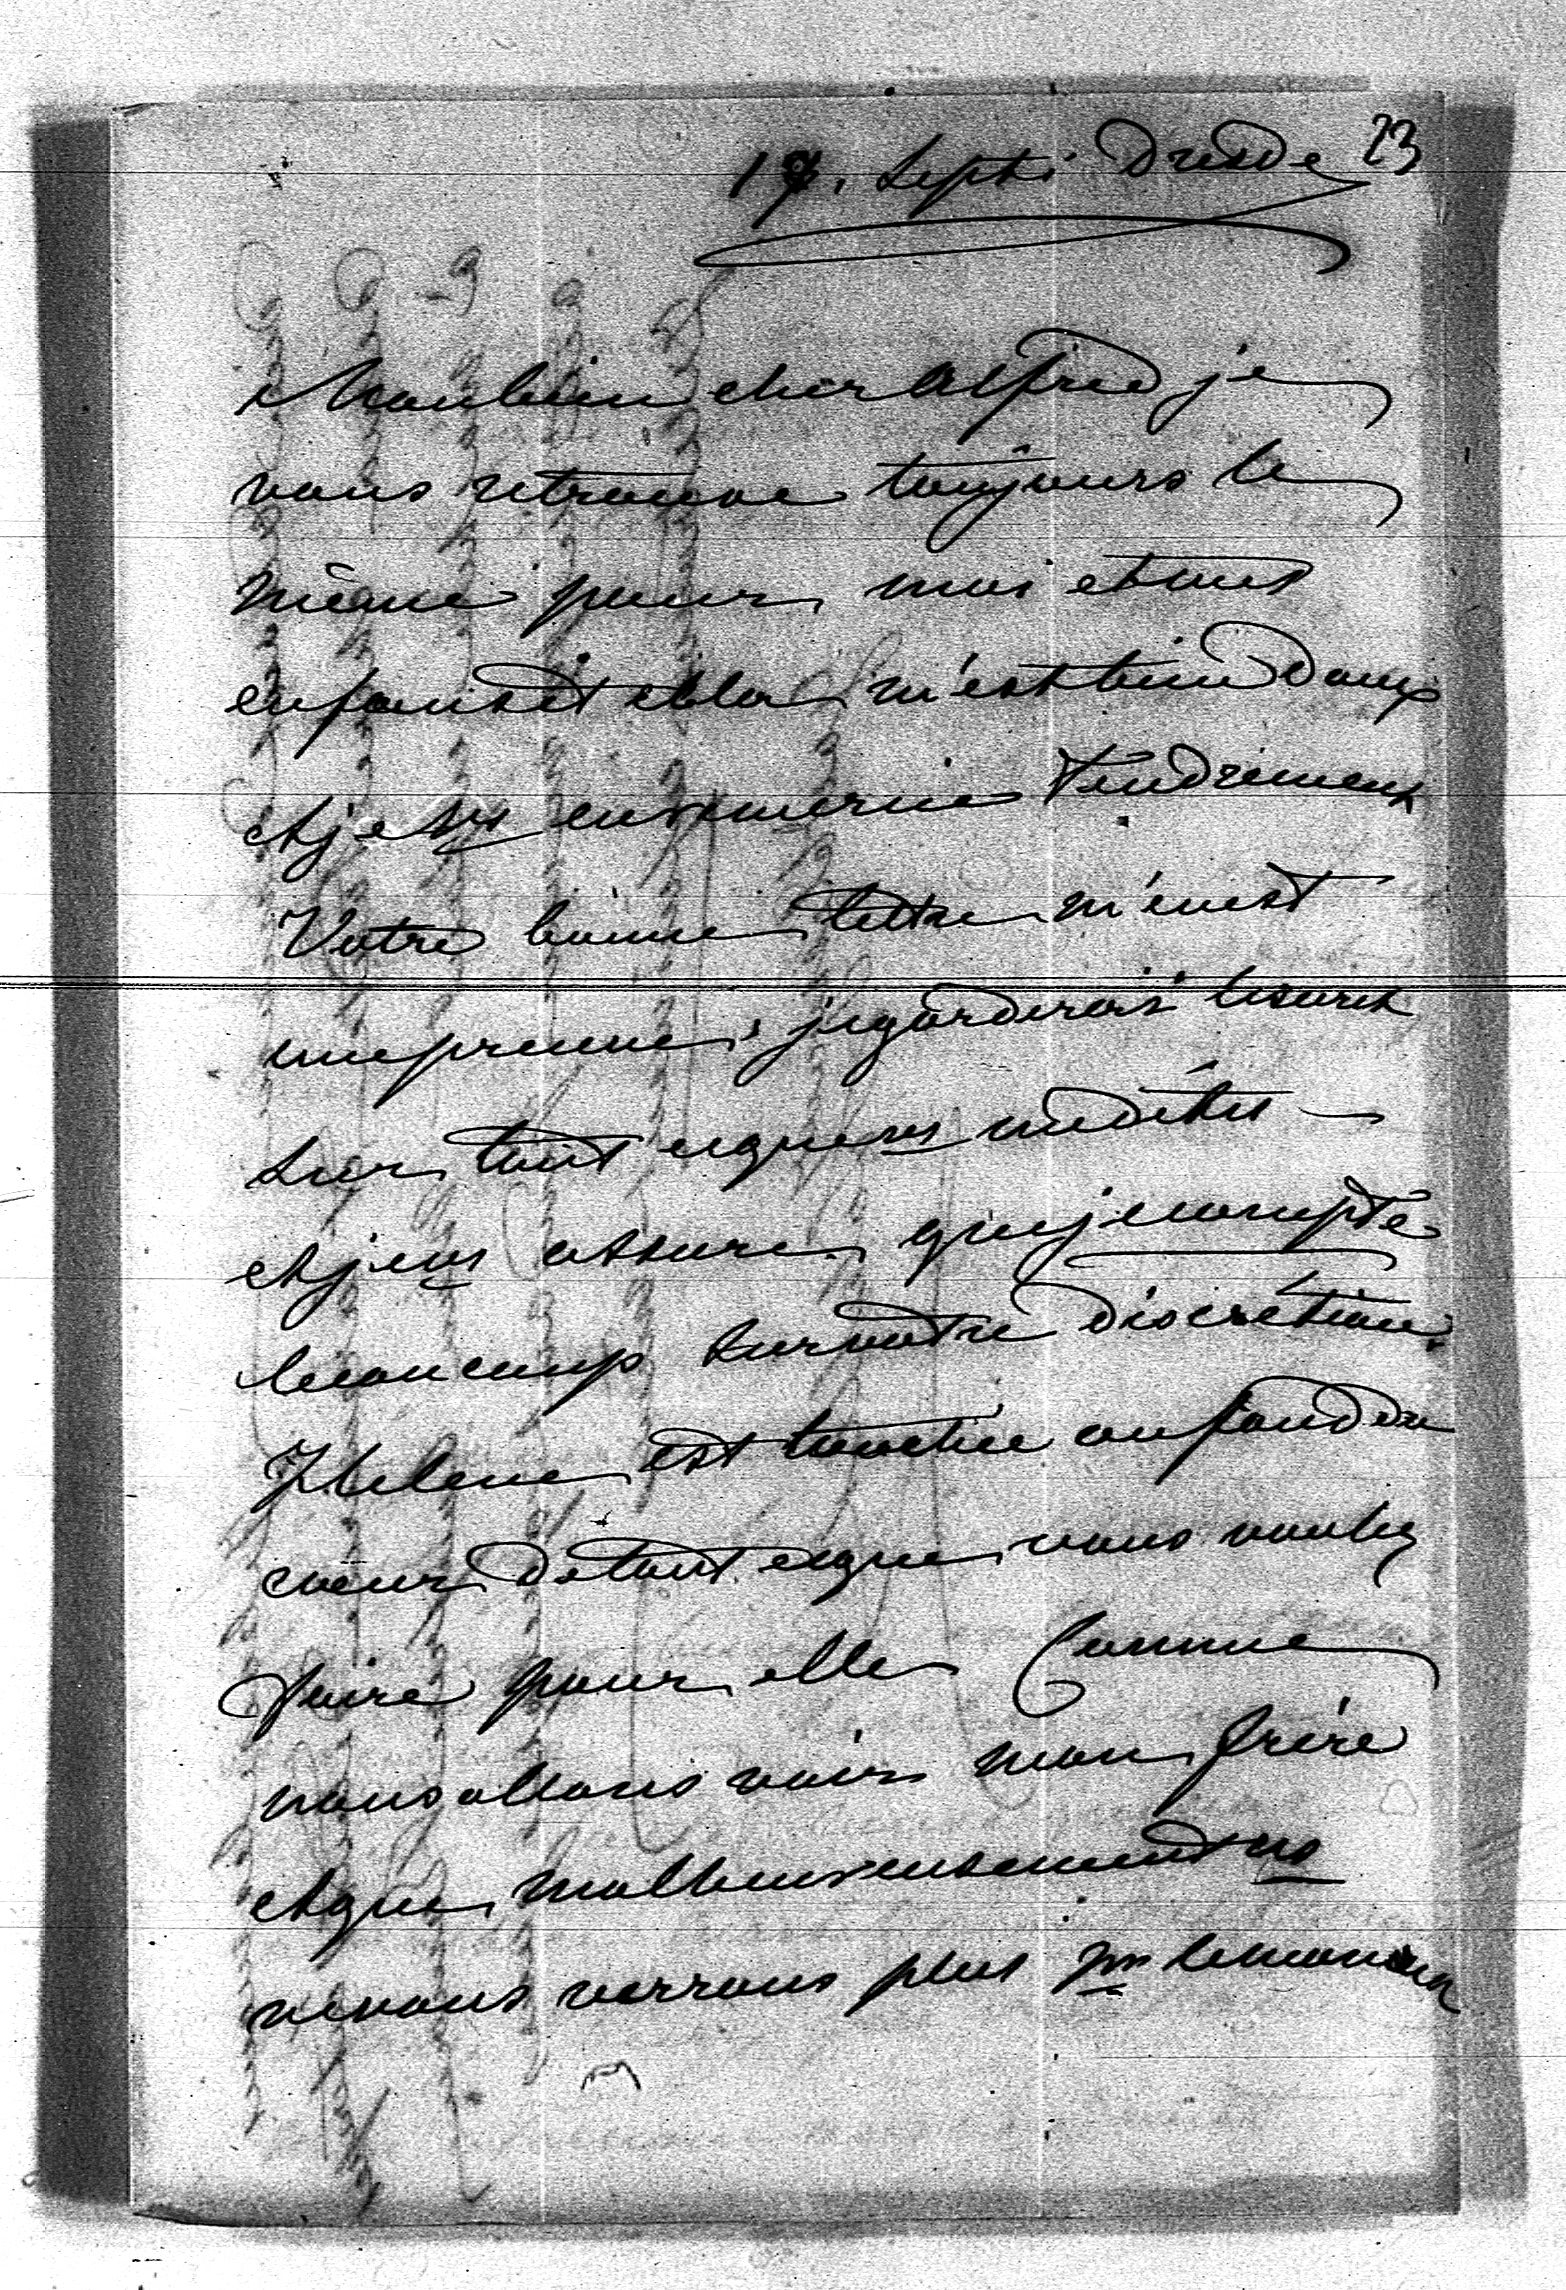 23
17. Septb. Dresde
Mon bien cher Alfred je
vous retrouve toujours le
même pour moi et mes
enfants et cela m'est bien doux
et je vs en remercie tendrement
Votre bonne lettre m'en est
une preuve, je garderais le secret
sur tout ce que vs me dites
et je vs assure que je compte
beaucoup sur votre discrétion.
Helene est touchée au fond du
coeur de tout ce que vous voulez
faire pour elle Comme
nous allons voir mon frère
et que malheureusement ns
ne vous verrons plus pr le moment